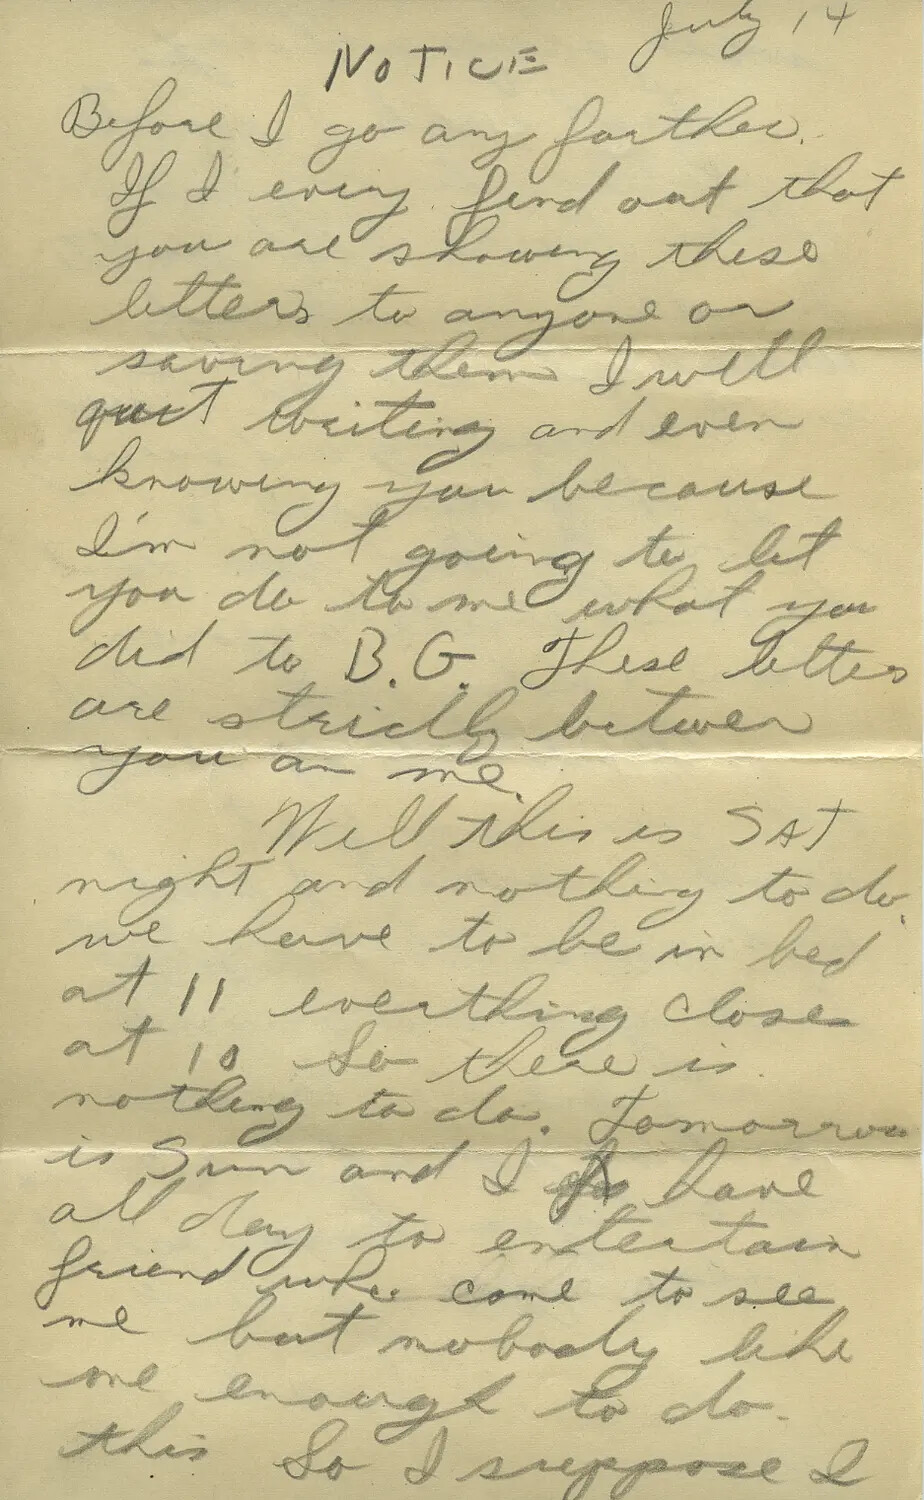 July 14
NOTICE
Before I go any farther.
If I every find out that
you are showing these
letters to anyone or
saving them I will
quit writing and even
knowing you because
I'm not going to let
you do to me what you
did to B.G. These letters
are strictly between
you an me.
Well this is SAT
night and nothing to do.
we have to be in bed
at 11 everthing close
at 10 So there is
nothing to do. Tomorrow
is Sun and I have
all day to entertain
friend who come to see
me but nobody like
me enough to do
this So I suppose I